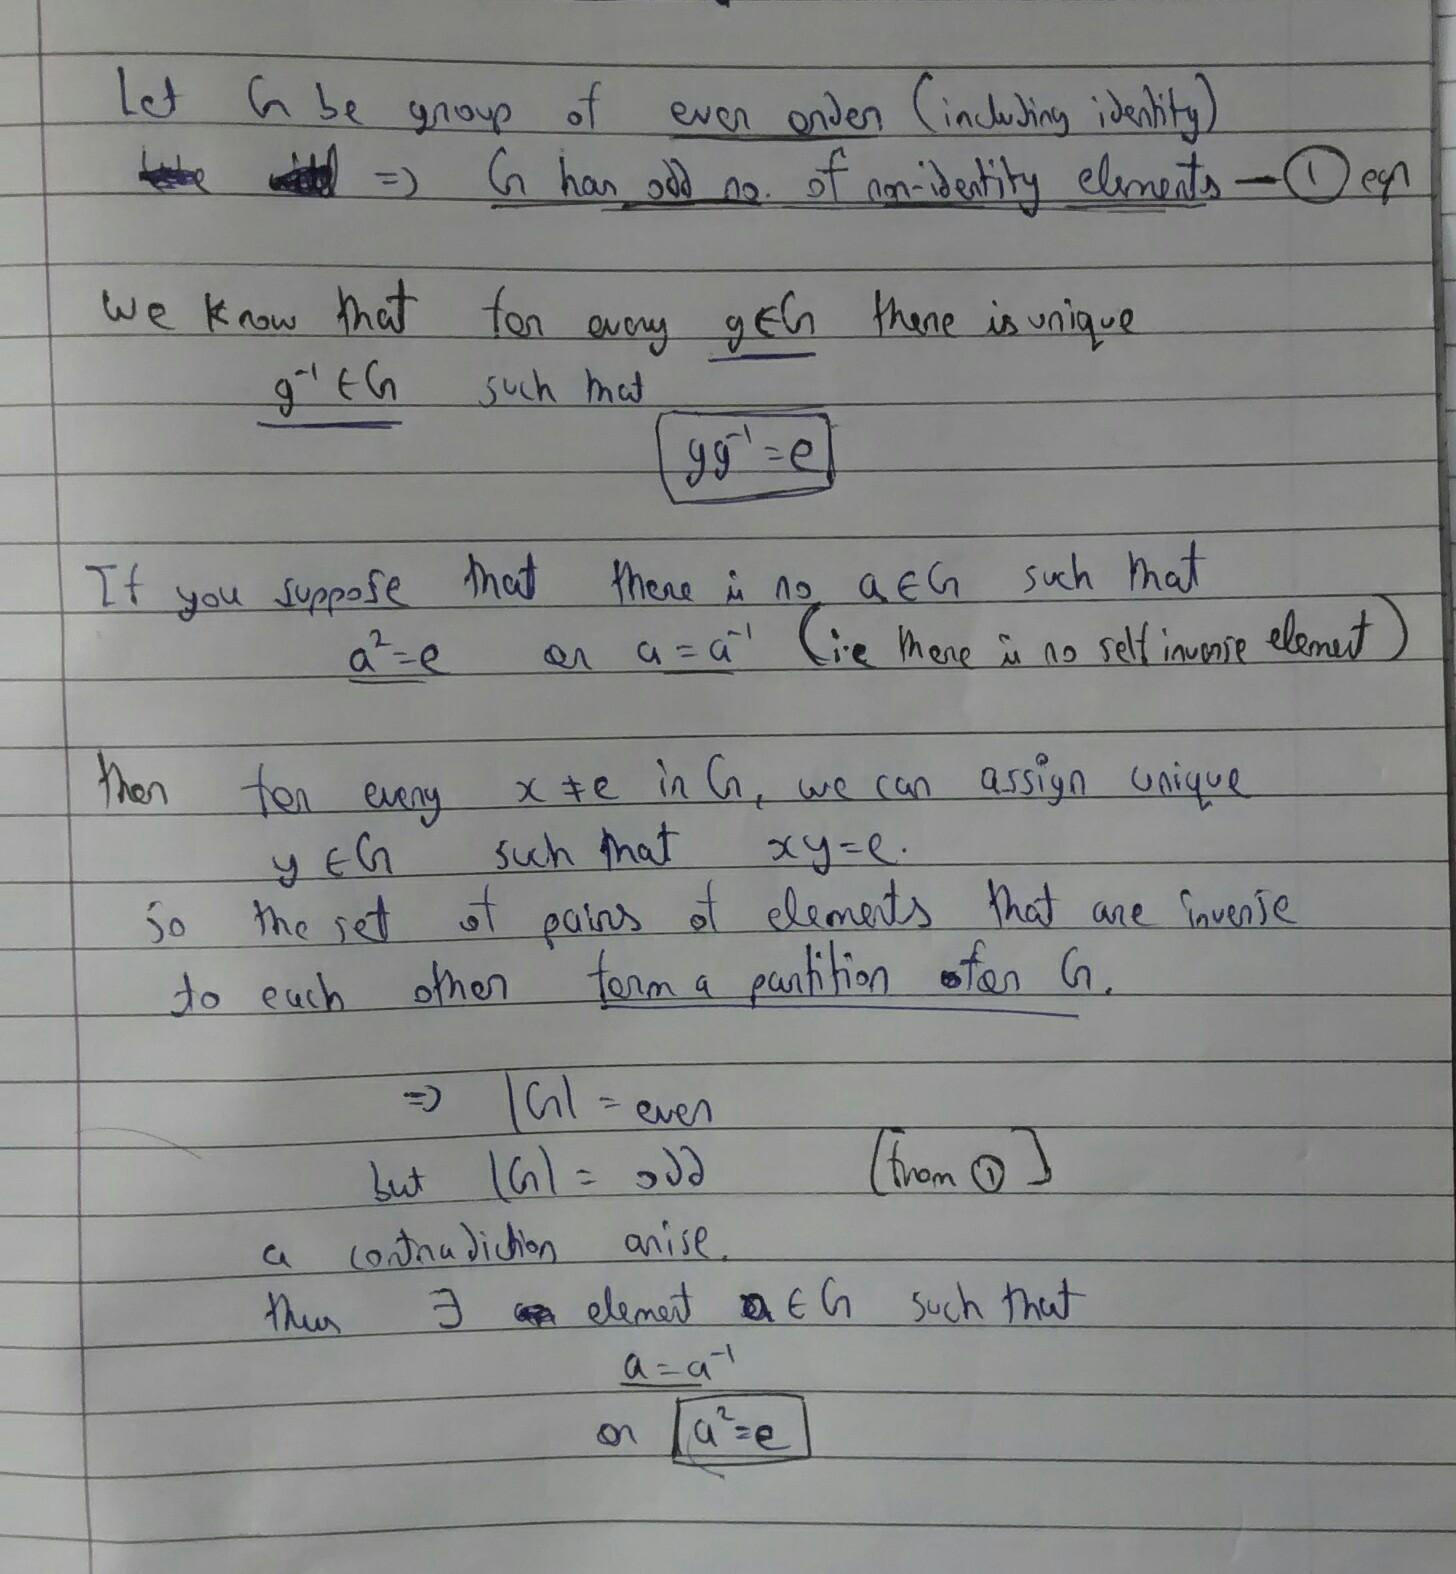 Let G be group of even order (including identity)
=> G has odd no. of non-identity elements — ① eqn
We know that for every g∈G there is unique
g⁻¹∈G such that
gg⁻¹=e
If you suppose that there is no a∈G such that
a²=e or a=a⁻¹ (i.e there is no self inverse element)
then for every x≠e in G, we can assign unique
y∈G such that xy=e.
so the set of pairs of elements that are inverse
to each other form a partition for G.
=> |G| = even
but |G| = odd [from ①]
a contradiction arise.
thus ∃ element a∈G such that
a=a⁻¹
or a²=e